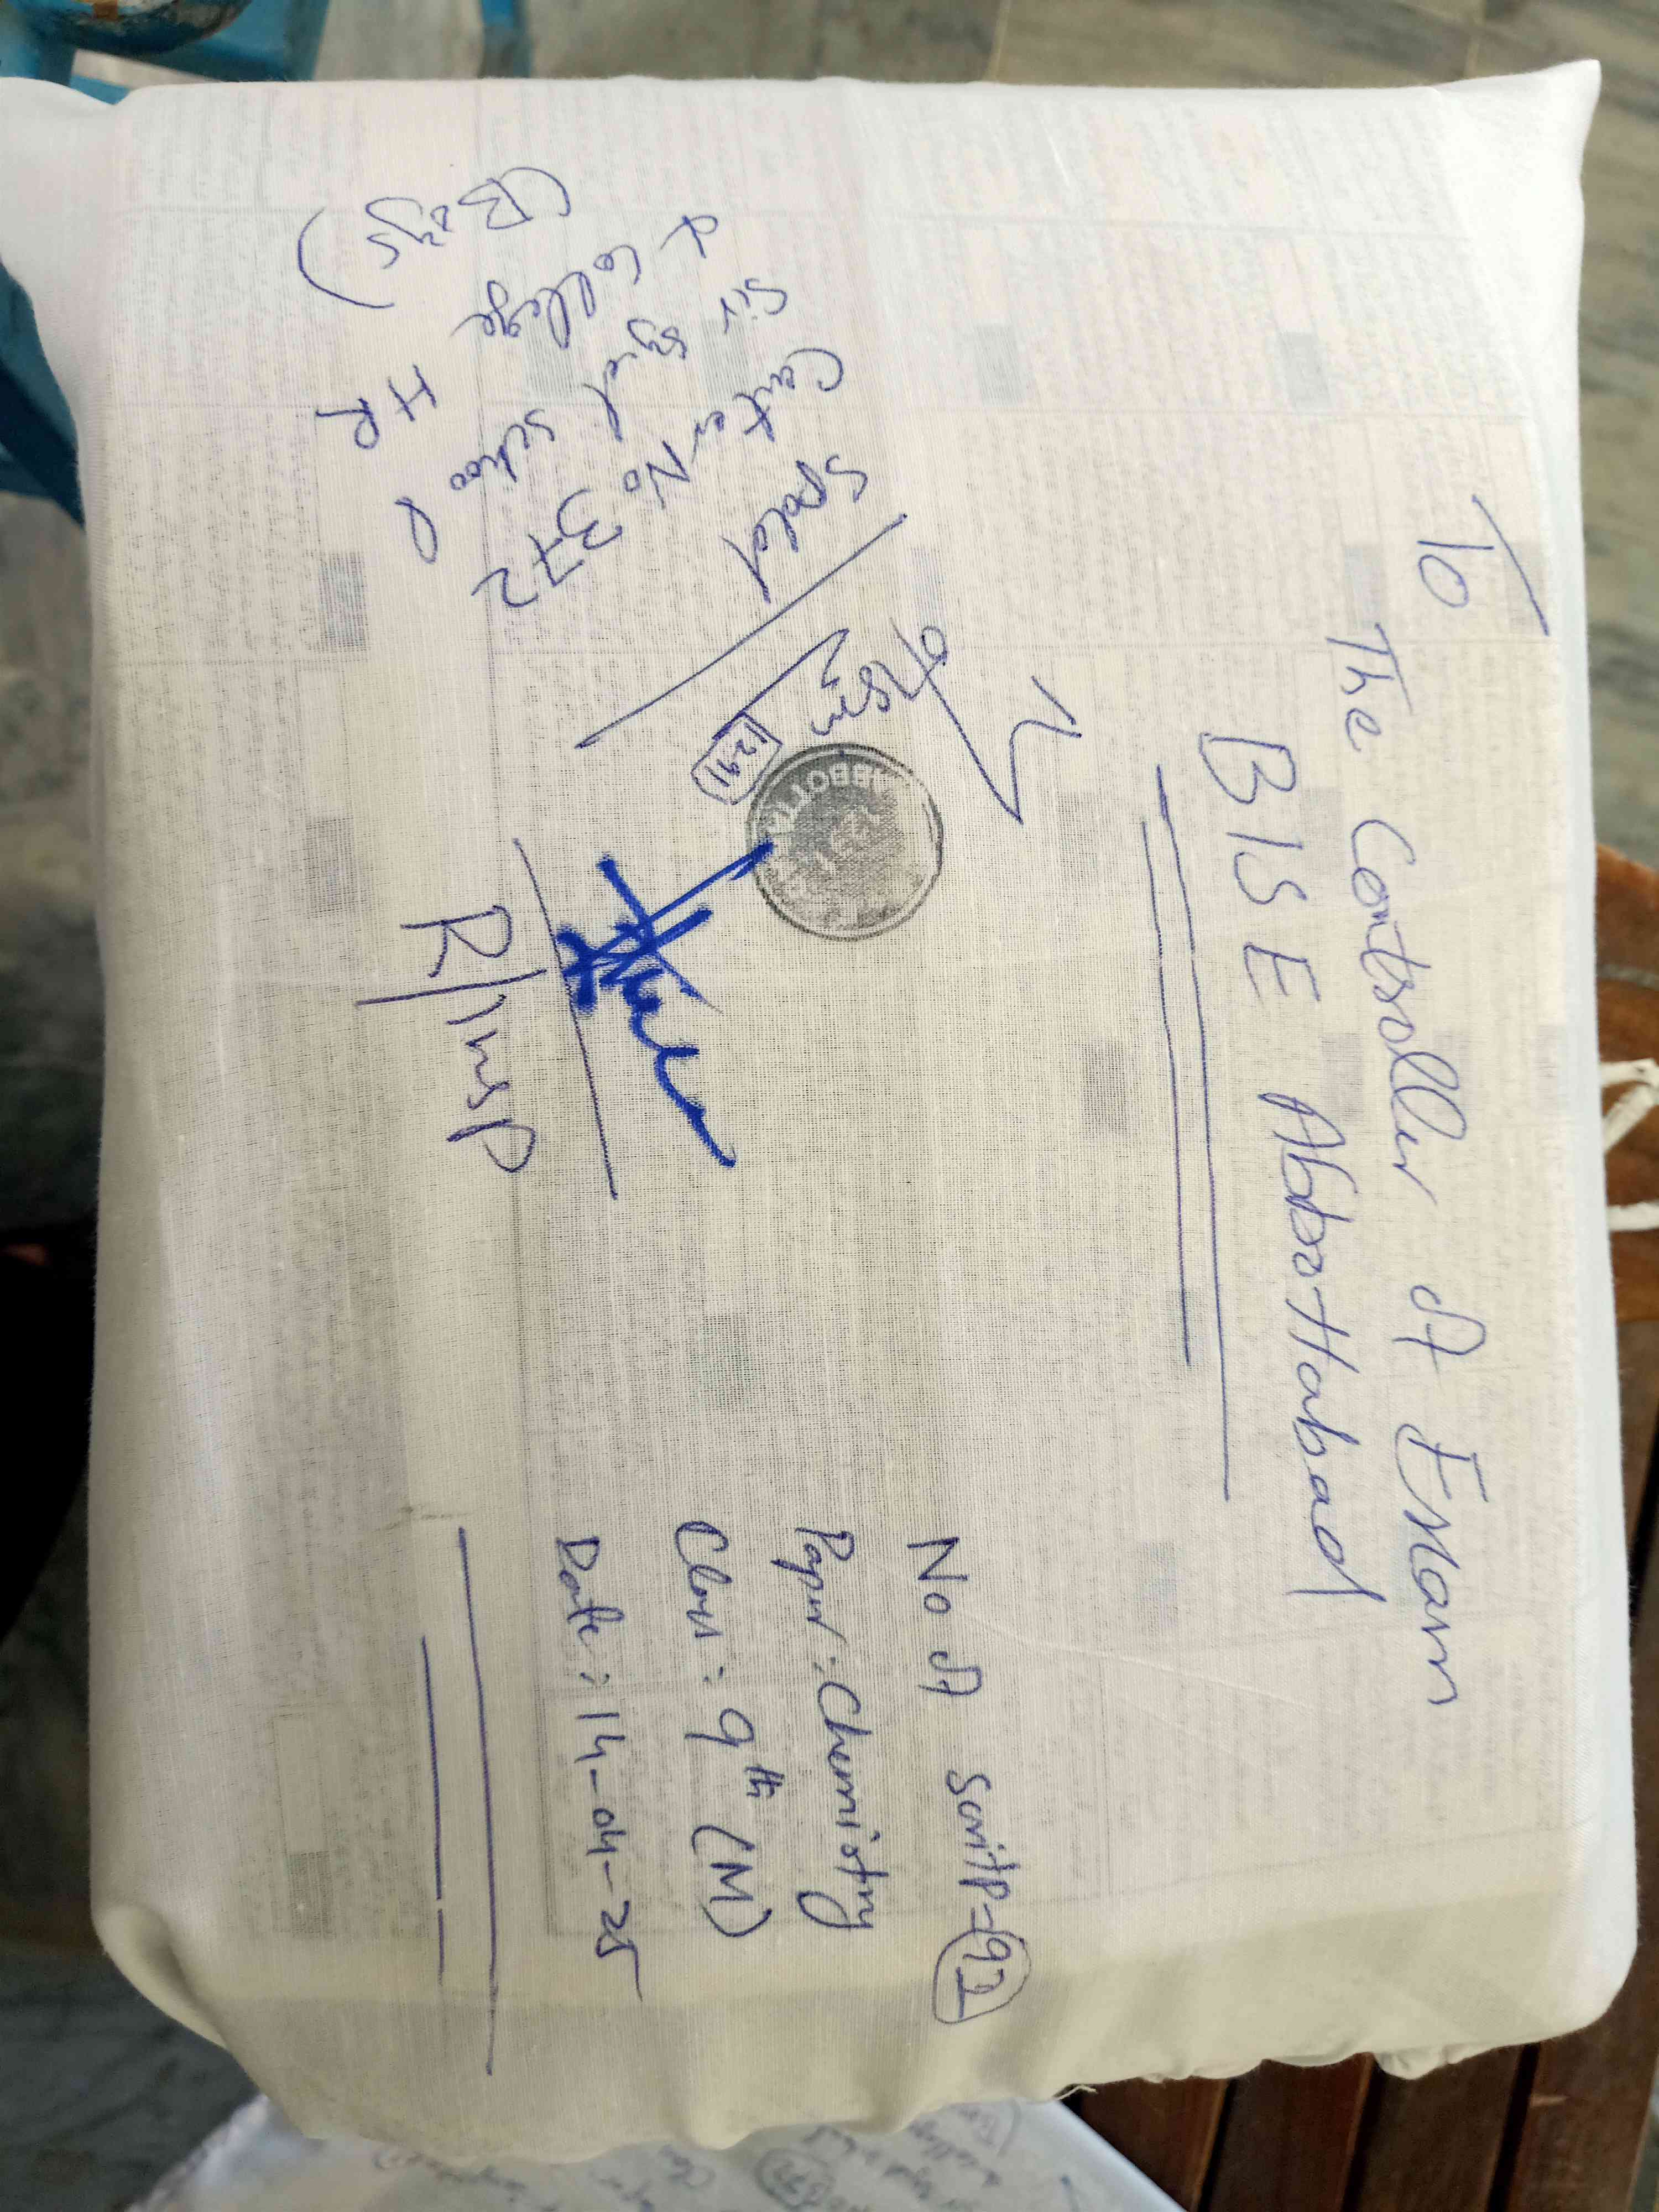 To
The Controller of Exam
BISE Abbottabad
No of scritp-92
Paper: Chemistry
Class: 9th (M)
Date: 14-04-25
R/Insp
Center No 372
Sir Syed School
& College HR
(Boys)
1291